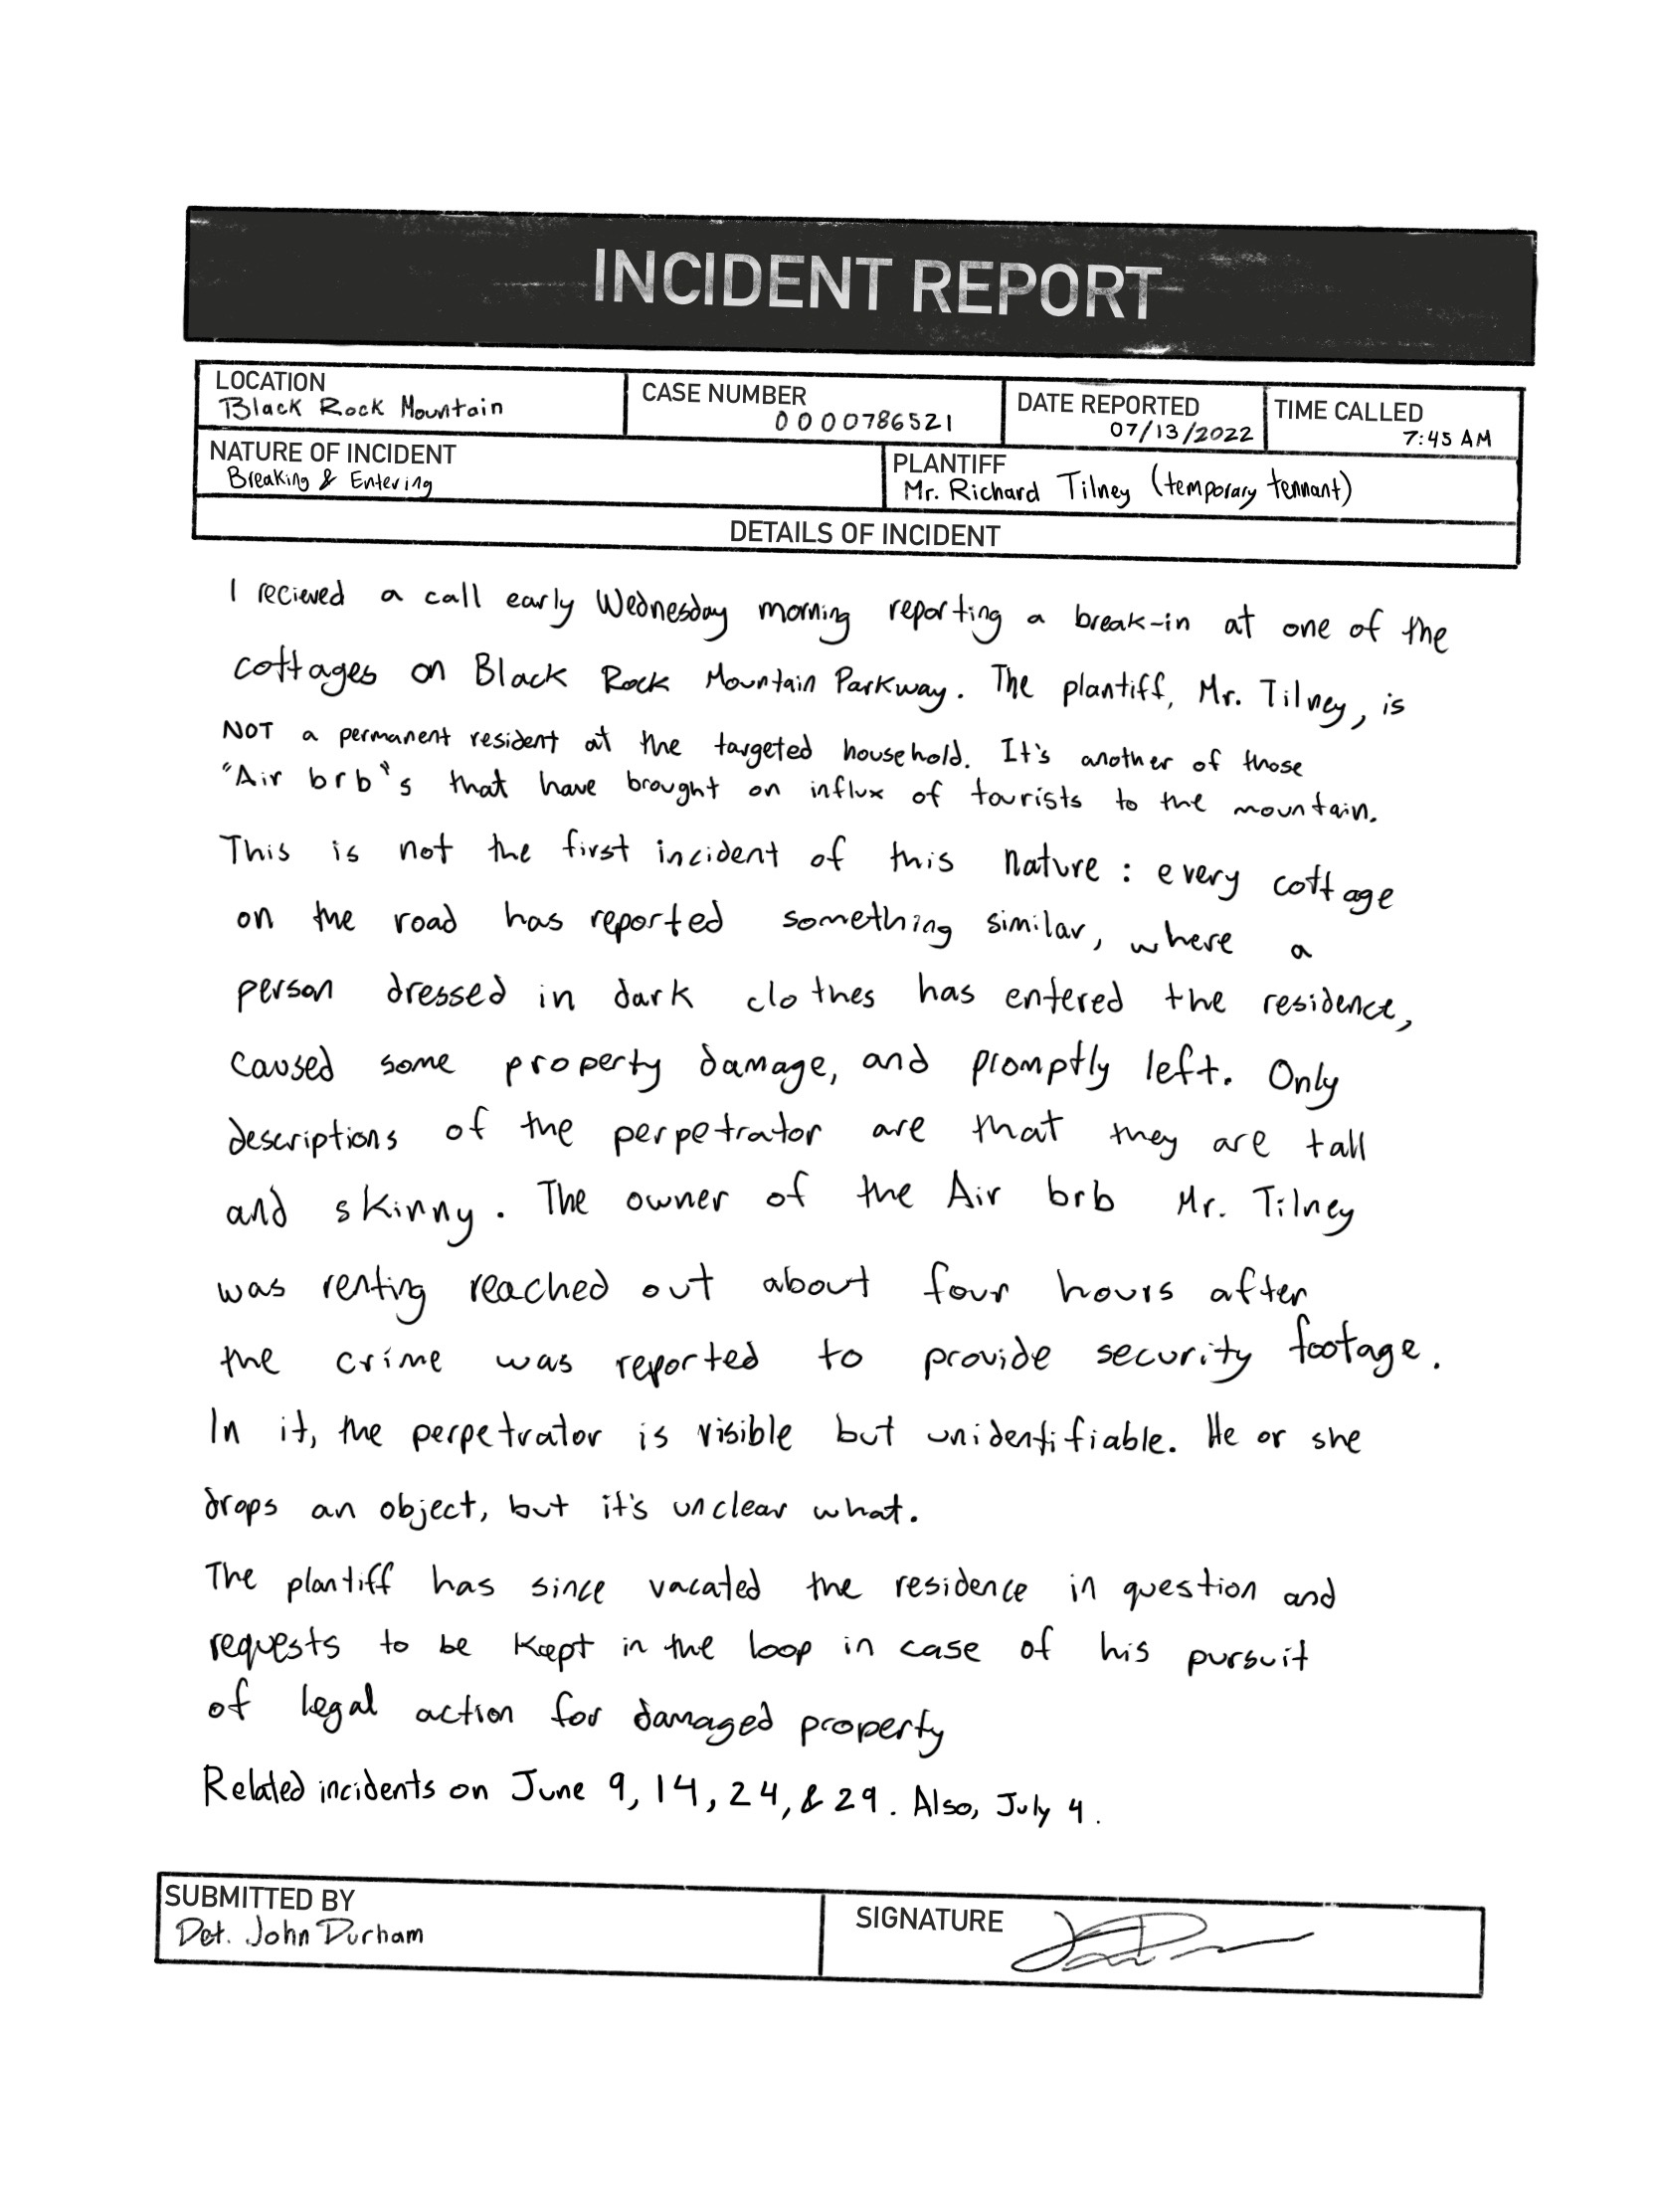 INCIDENT REPORT
LOCATION
Black Rock Mountain
CASE NUMBER
0000786521
DATE REPORTED
07/13/2022
TIME CALLED
7:45 AM
NATURE OF INCIDENT
Breaking & Entering
PLANTIFF
Mr. Richard Tilney (temporary tennant)
DETAILS OF INCIDENT
I recieved a call early Wednesday morning reporting a break-in at one of the
cottages on Black Rock Mountain Parkway. The plantiff, Mr. Tilney, is
NOT a permanent resident at the targeted household. It's another of those
"Air brb"s that have brought on influx of tourists to the mountain.
This is not the first incident of this nature: every cottage
on the road has reported something similar, where a
person dressed in dark clothes has entered the residence,
caused some property damage, and promptly left. Only
descriptions of the perpetrator are that they are tall
and skinny. The owner of the Air brb Mr. Tilney
was renting reached out about four hours after
the crime was reported to provide security footage.
In it, the perpetrator is visible but unidentifiable. He or she
drops an object, but it's unclear what.
The plantiff has since vacated the residence in question and
requests to be kept in the loop in case of his pursuit
of legal action for damaged property
Related incidents on June 9, 14, 24, & 29. Also, July 4.
SUBMITTED BY
Det. John Durham
SIGNATURE